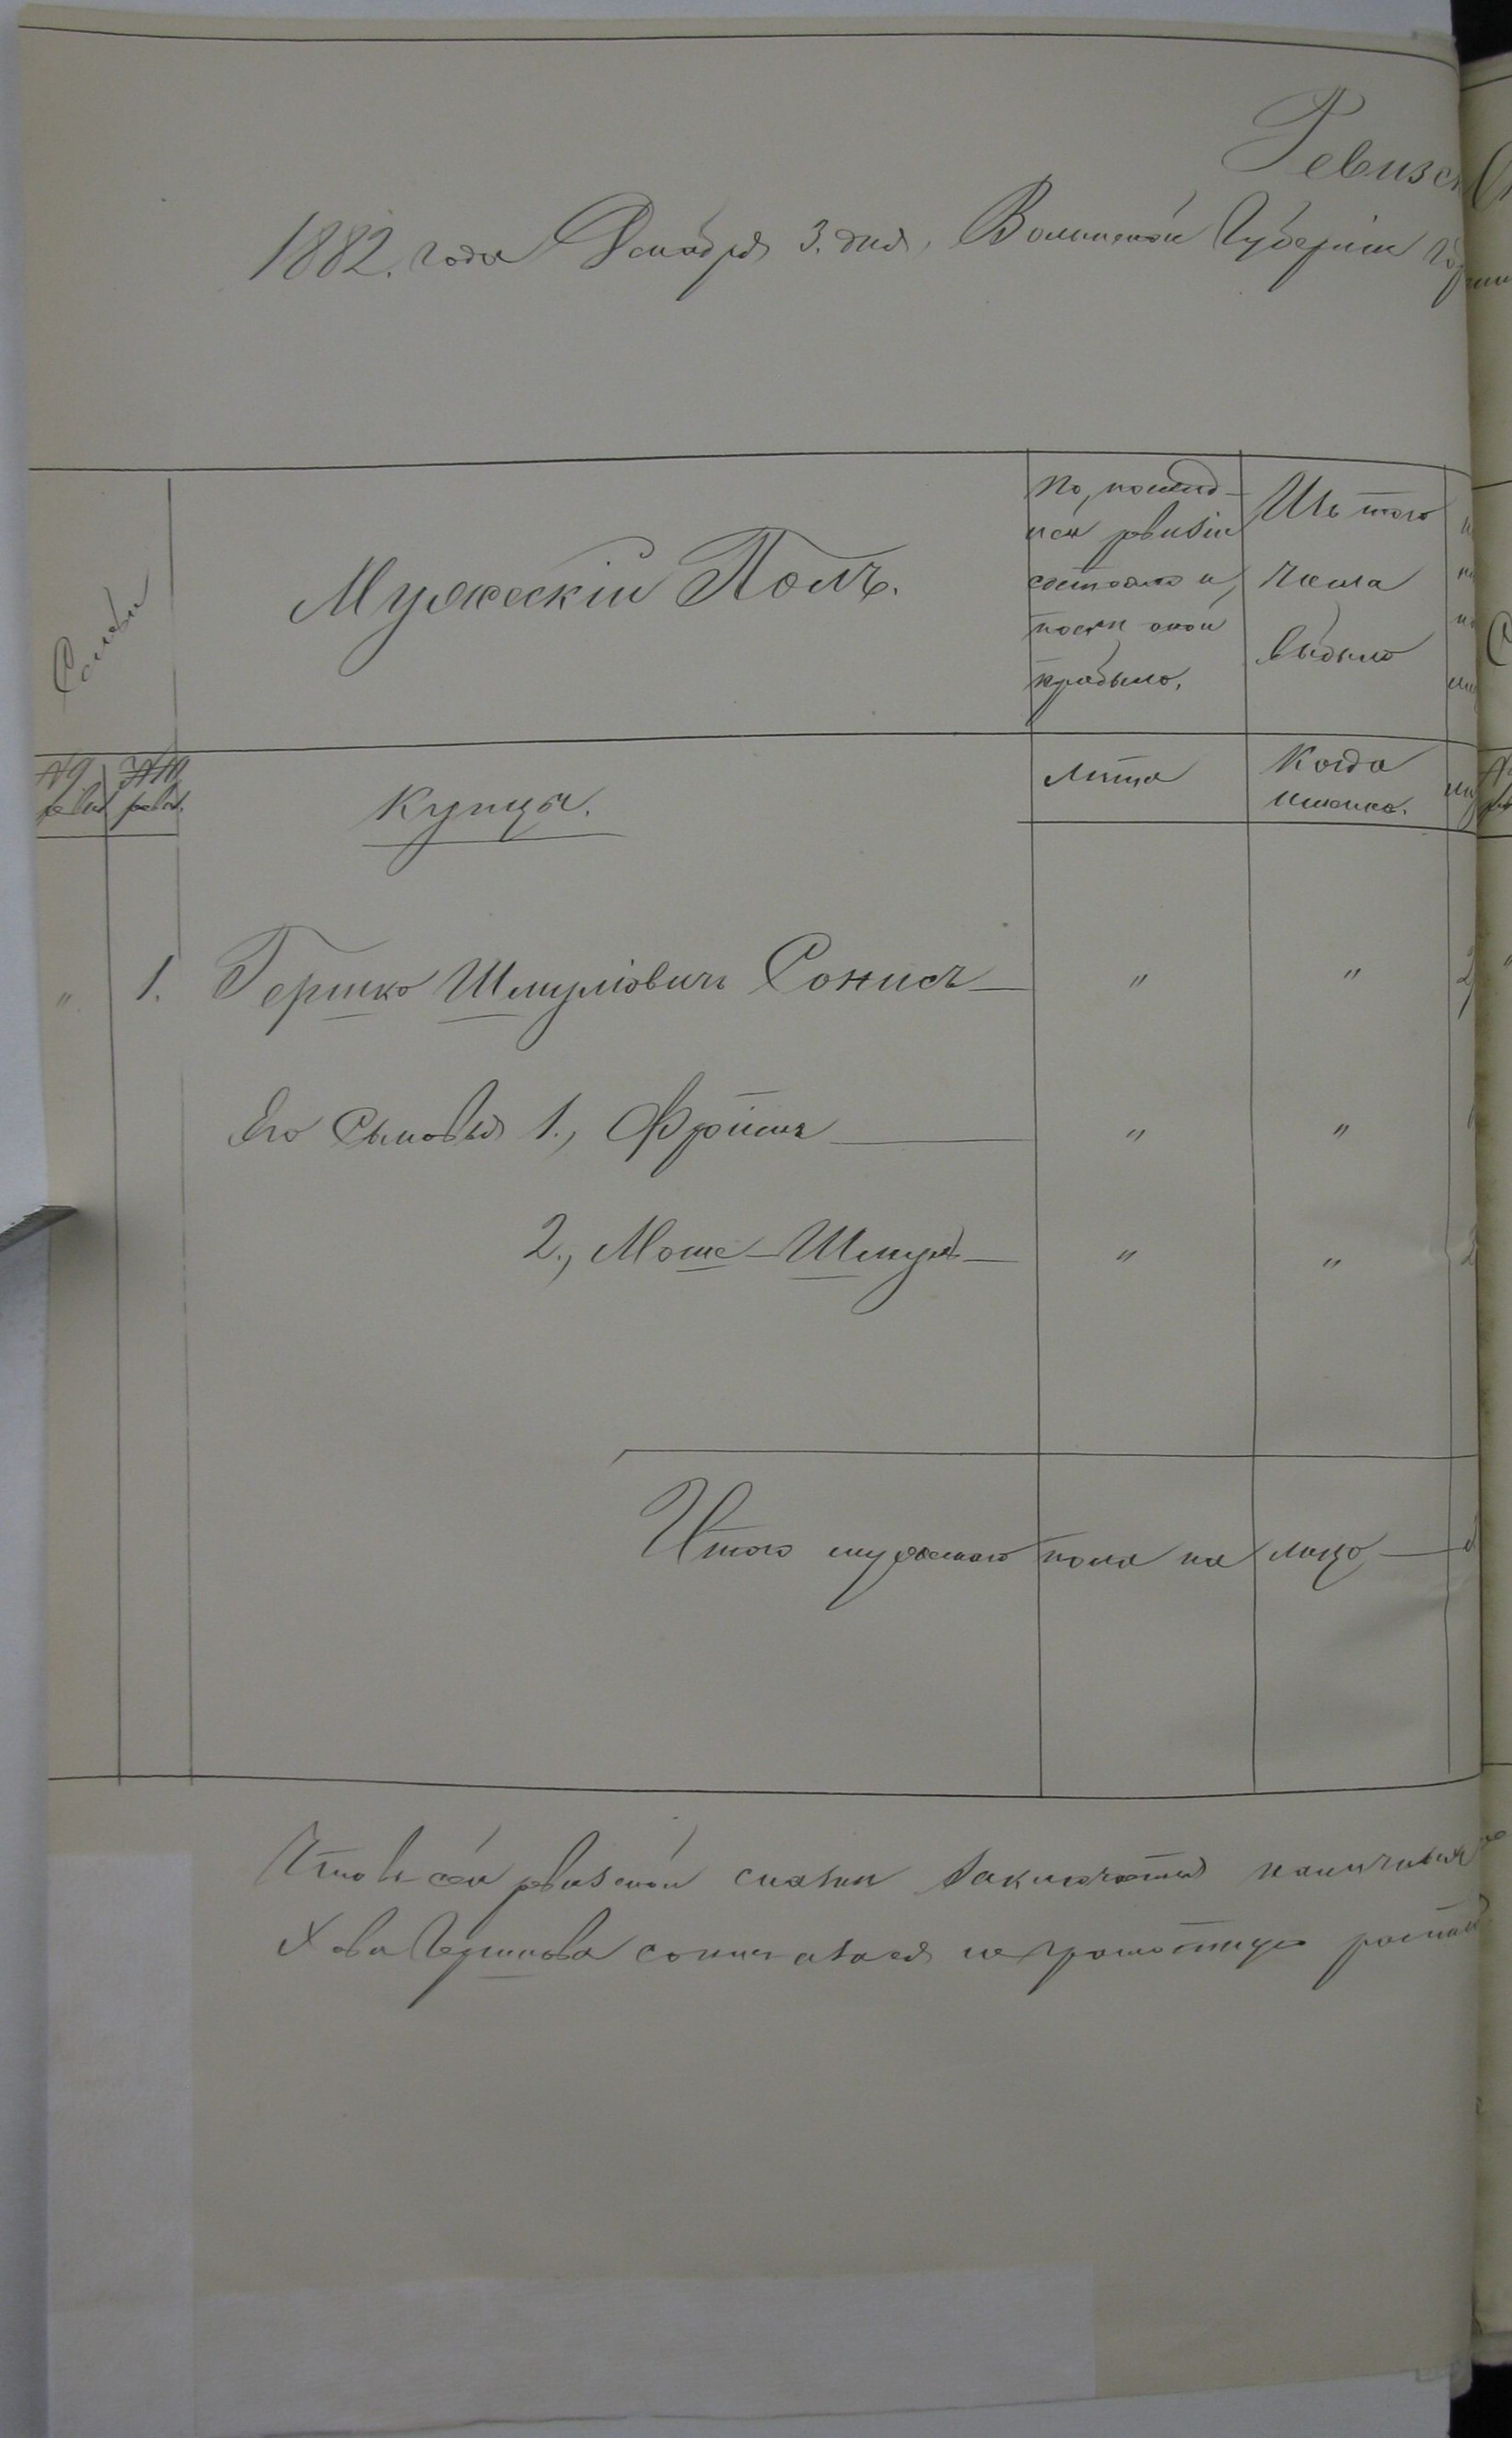 Ревизс
1882. года Декабря 3. дня, Волынской Губернiи
Семьи
Мужескiй Полъ.
По послѣд-
ней ревизiи
состояло и
послѣ оной
прибыло.
Изъ того
числа
выбыло
№ 9 ревиз.
№ 10 ревиз.
Купцы.
Лѣта
Когда
именно.
" 1. Гершко Шмулiовичъ Сонисъ — " "
Его Сыновья 1., Фроимъ — " "
2., Моше-Шмуль — " "
Итого мужескаго пола на лицо —
Что въ сей ревизской сказки заключается наличныхъ
Хова Гершкова Сонисъ а за ея неграмотную